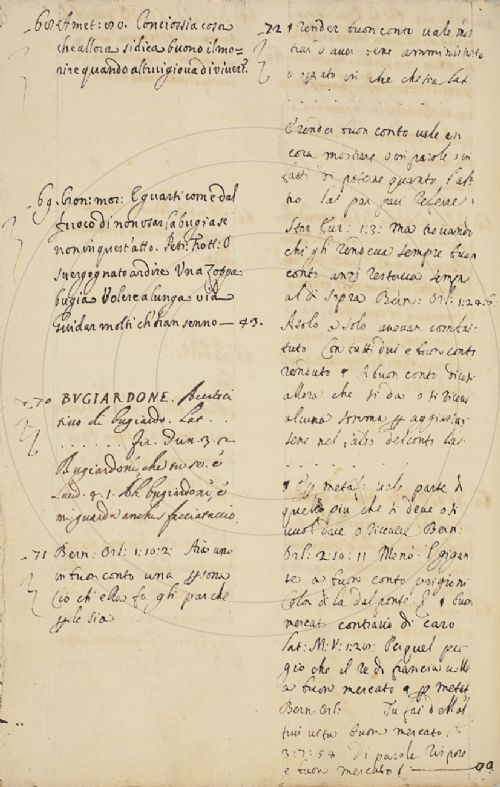 68 Amet: 80. Conciossia cosa
che allora si dica buono il mo-
rire quando altrui giova di vivere.
69 Cron: mor: E guarti come dal
fuoco di non usar la bugia se
non in quest'atto. Petr: Frott: O
svergognato ardire Una zoppa
bugia Volere a lunga via
Guidar molti ch'han senno — 43.
70 BUGIARDONE. Accresci
tivo di bugiardo. Lat. . .
. . . . . . Fir. 3. 2
Bugiardone che tu se. e
Lucid. 4. 1. bugiardone, e
mi guarda anche
71 Bern: Orl: 1: 10: 2: Avea uno
in buon conto una persona
Ciò ch'ella fa gli par che
ben le stia
72 ¶ render buon conto vale mos
trar d'aver bene amministrato
o che che sia Lat.
. . . . .
E render buon conto vale an
cora mostrare o in parole o in
fatti di poterne quanto l'alt
ro Lat. par pari referre.
Stor Eur: 1: 3: Ma trovando
chi gli rendeva sempre buon
conto anzi restava sempre
al di sopra Bern: Orl: 1: 24: 6.
A solo a solo avevan combat-
tuto Con tutti dui e buon conto
renduto ¶ A buon conto dicesi
allora che si da o si riceve
alcuna somma per aggiustar
sene nel saldo del conto Lat.
. . . . . .
¶ Per metaf: vale parte di
quello più che si deve o si
vuol dare o ricevere Bern:
Orl: 2: 10: 11 Menò l gigan
te a buon conto prigioni
Color di là dal ponte ¶ buon
mercato contrario di caro
Lat: M: V: 1: 20: Per quel per
gio che il re di francia volle
a buon mercato ¶ per metaf
Bern Orl: Tu fai o Mal
buon mercato:
3: 7: 54 Di parole
e buon mercato